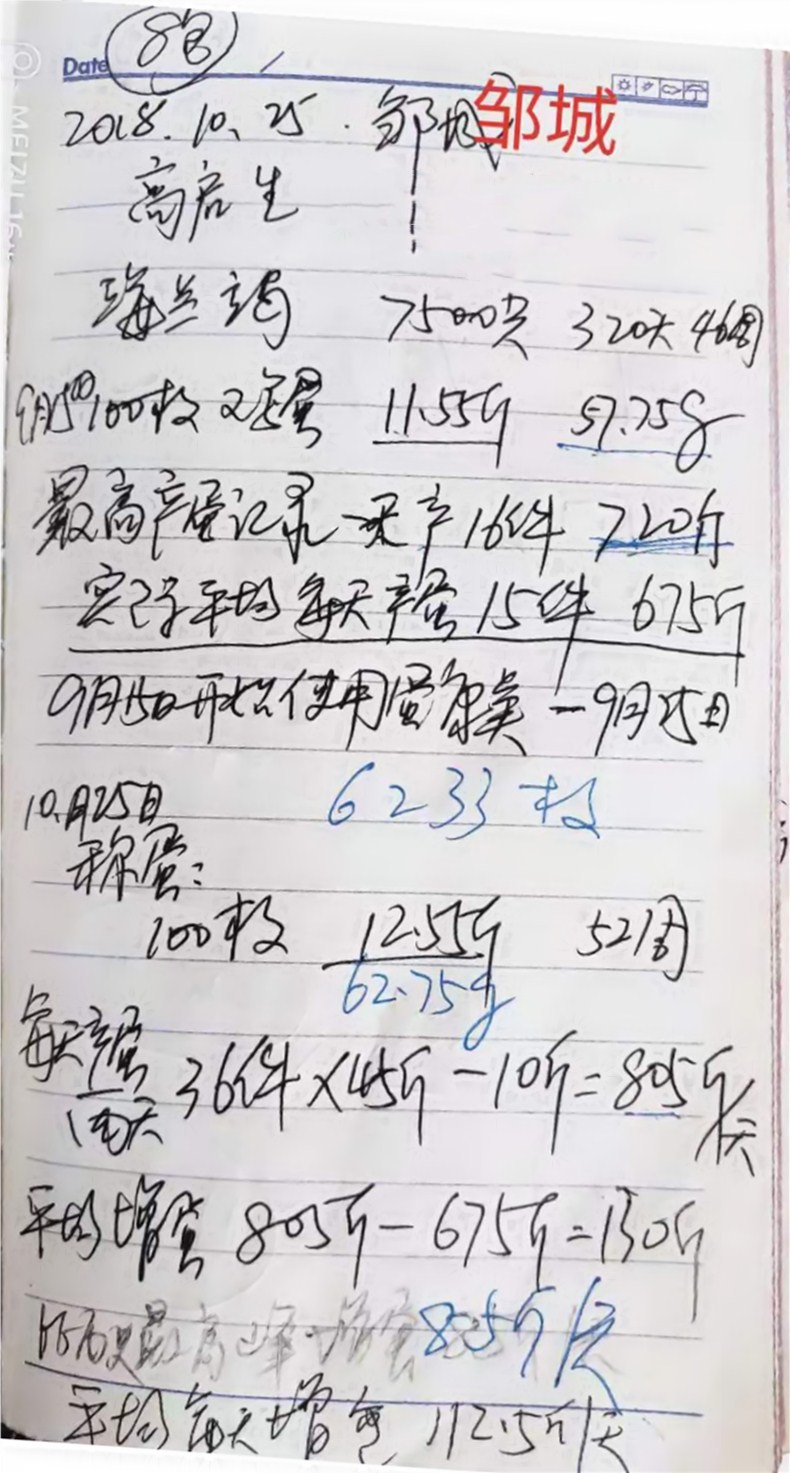 8包
Date
2018.10.25. 邹城 邹城
高启生
海兰褐 7500只 320天 46周
9月15日 100枚 鸡蛋 11.55斤 57.75g
最高产蛋记录 一天产16件 720斤
实际平均每天产蛋15件 675斤
9月15日开始使用蛋 — 9月25日
6233枚
10.月25日
称蛋:
100枚 12.55斤 52周
62.75g
每天产蛋
36件×45斤-10斤=805斤/天
两天
平均增蛋 805斤-675斤=130斤
比历史最高峰增蛋 85斤/天
平均每天增 112.5斤/天
MEIZU 16th